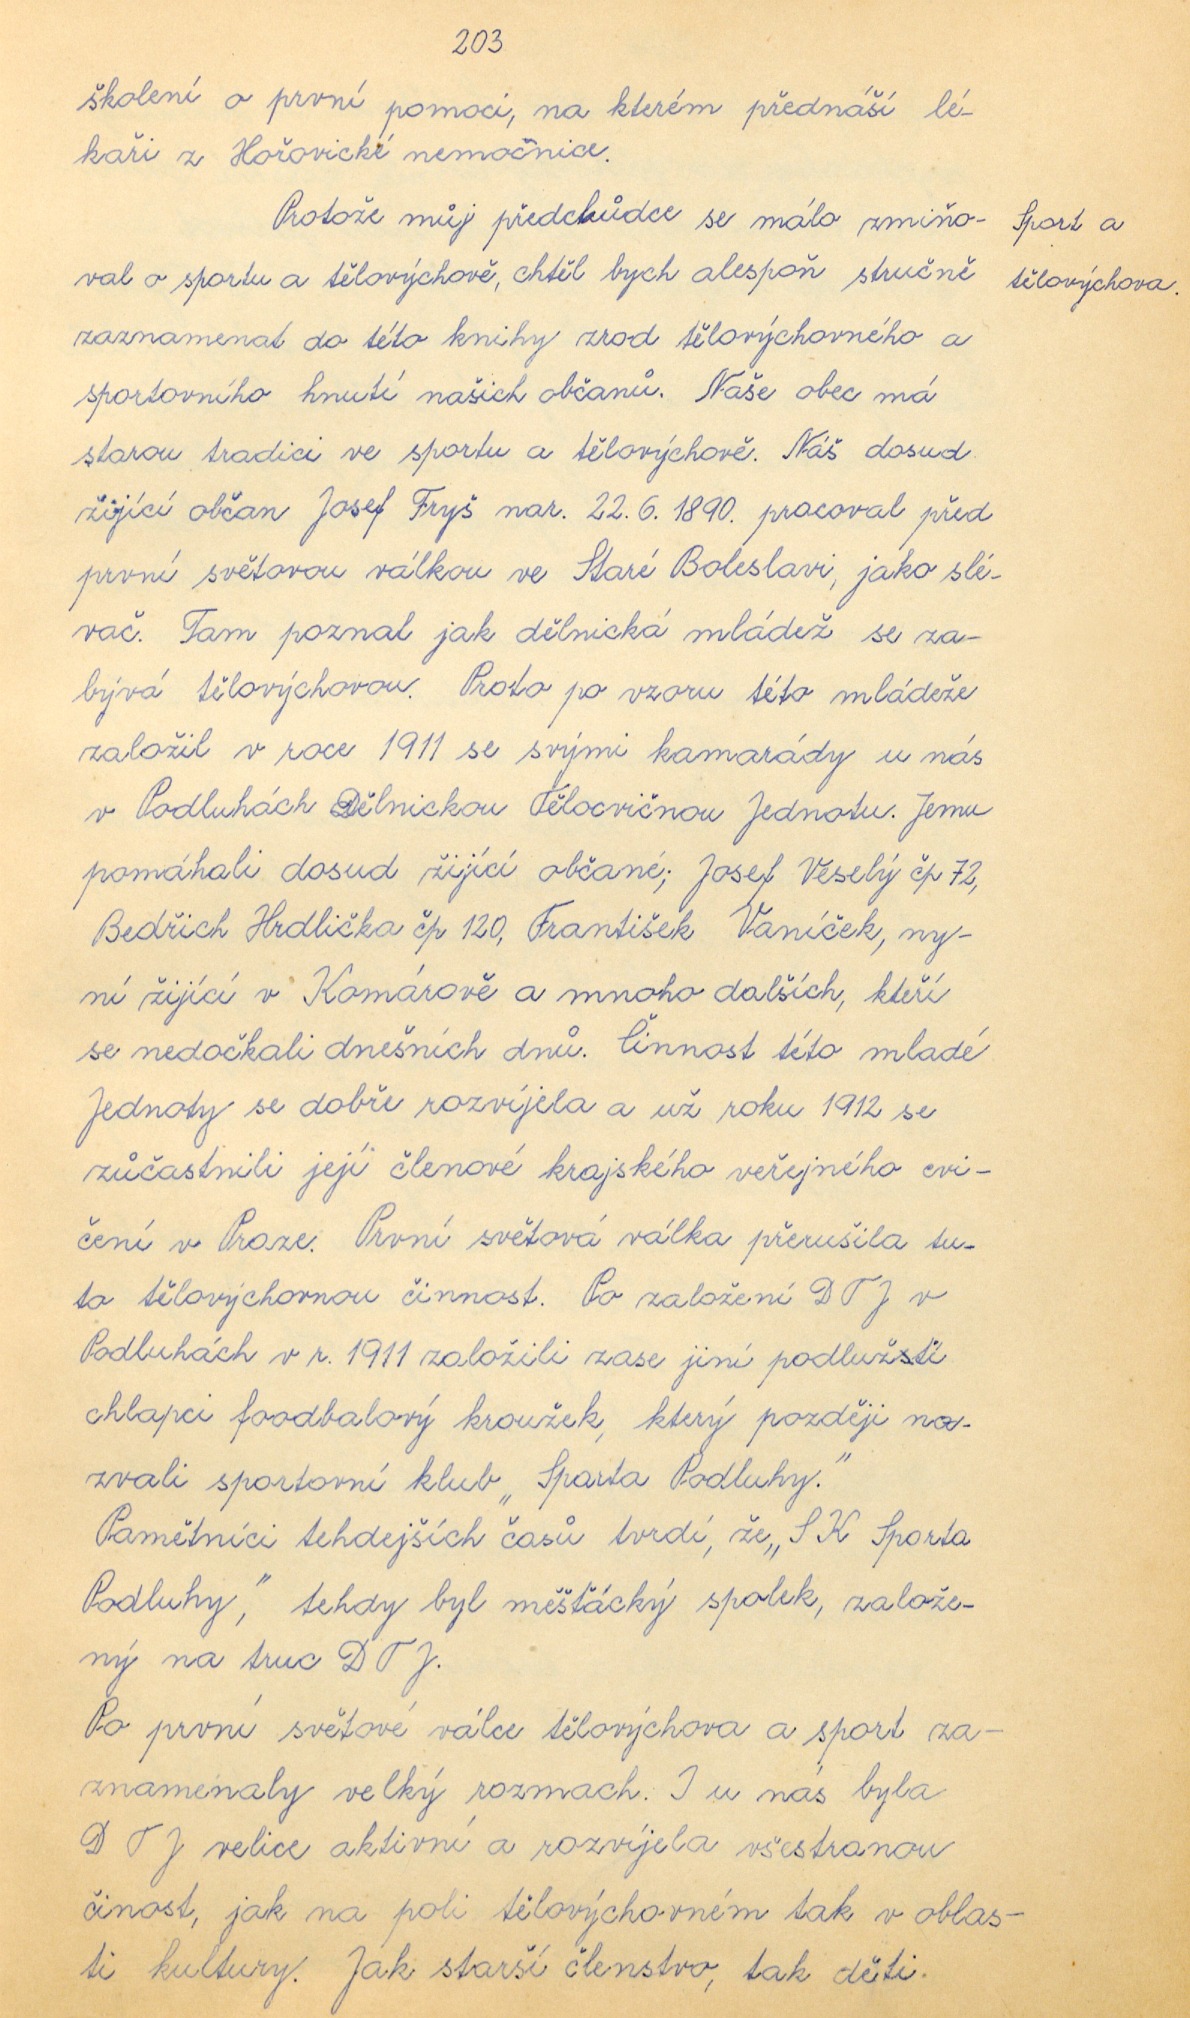 203
školení o první pomoci, na kterém přednáší lé-
kaři z Hořovické nemocnice.
Protože můj předchůdce se málo zmiňo-
Sport a
val o sportu a tělovýchově, chtěl bych alespoň stručně
tělovýchova.
zaznamenat do této knihy zrod tělovýchovného a
sportovního hnutí našich občanů. Naše obec má
starou tradici ve sportu a tělovýchově. Náš dosud
žijící občan Josef Fryš nar. 22. 6. 1890. pracoval před
první světovou válkou ve Staré Boleslavi, jako slé-
vač. Tam poznal jak dělnická mládež se za-
bývá tělovýchovou. Proto po vzoru této mládeže
založil v roce 1911 se svými kamarády u nás
v Podluhách Dělnickou Tělocvičnou Jednotu. Jemu
pomáhali dosud žijící občané; Josef Veselý čp 72,
Bedřich Hrdlička čp 120, František Vaníček, ny-
ní žijící v Komárově a mnoho dalších, kteří
se nedočkali dnešních dnů. Činnost této mladé
Jednoty se dobře rozvíjela a už roku 1912 se
zůčastnili její členové krajského veřejného cvi-
čení v Praze. První světová válka přerušila tu-
to tělovýchovnou činnost. Po založení D T J v
Podluhách v r. 1911 založili zase jiní podlužstí
chlapci foodbalový kroužek, který později na-
zvali sportovní klub „Sparta Podluhy."
Pamětníci tehdejších časů tvrdí, že „S K Sparta
Podluhy," tehdy byl měšťácký spolek, založe-
ný na truc D T J.
Po první světové válce tělovýchova a sport za-
znamenaly velký rozmach. I u nás byla
D T J velice aktivní a rozvíjela všestranou
činost, jak na poli tělovýchovném tak v oblas-
ti kultury. Jak starší členstvo, tak děti.